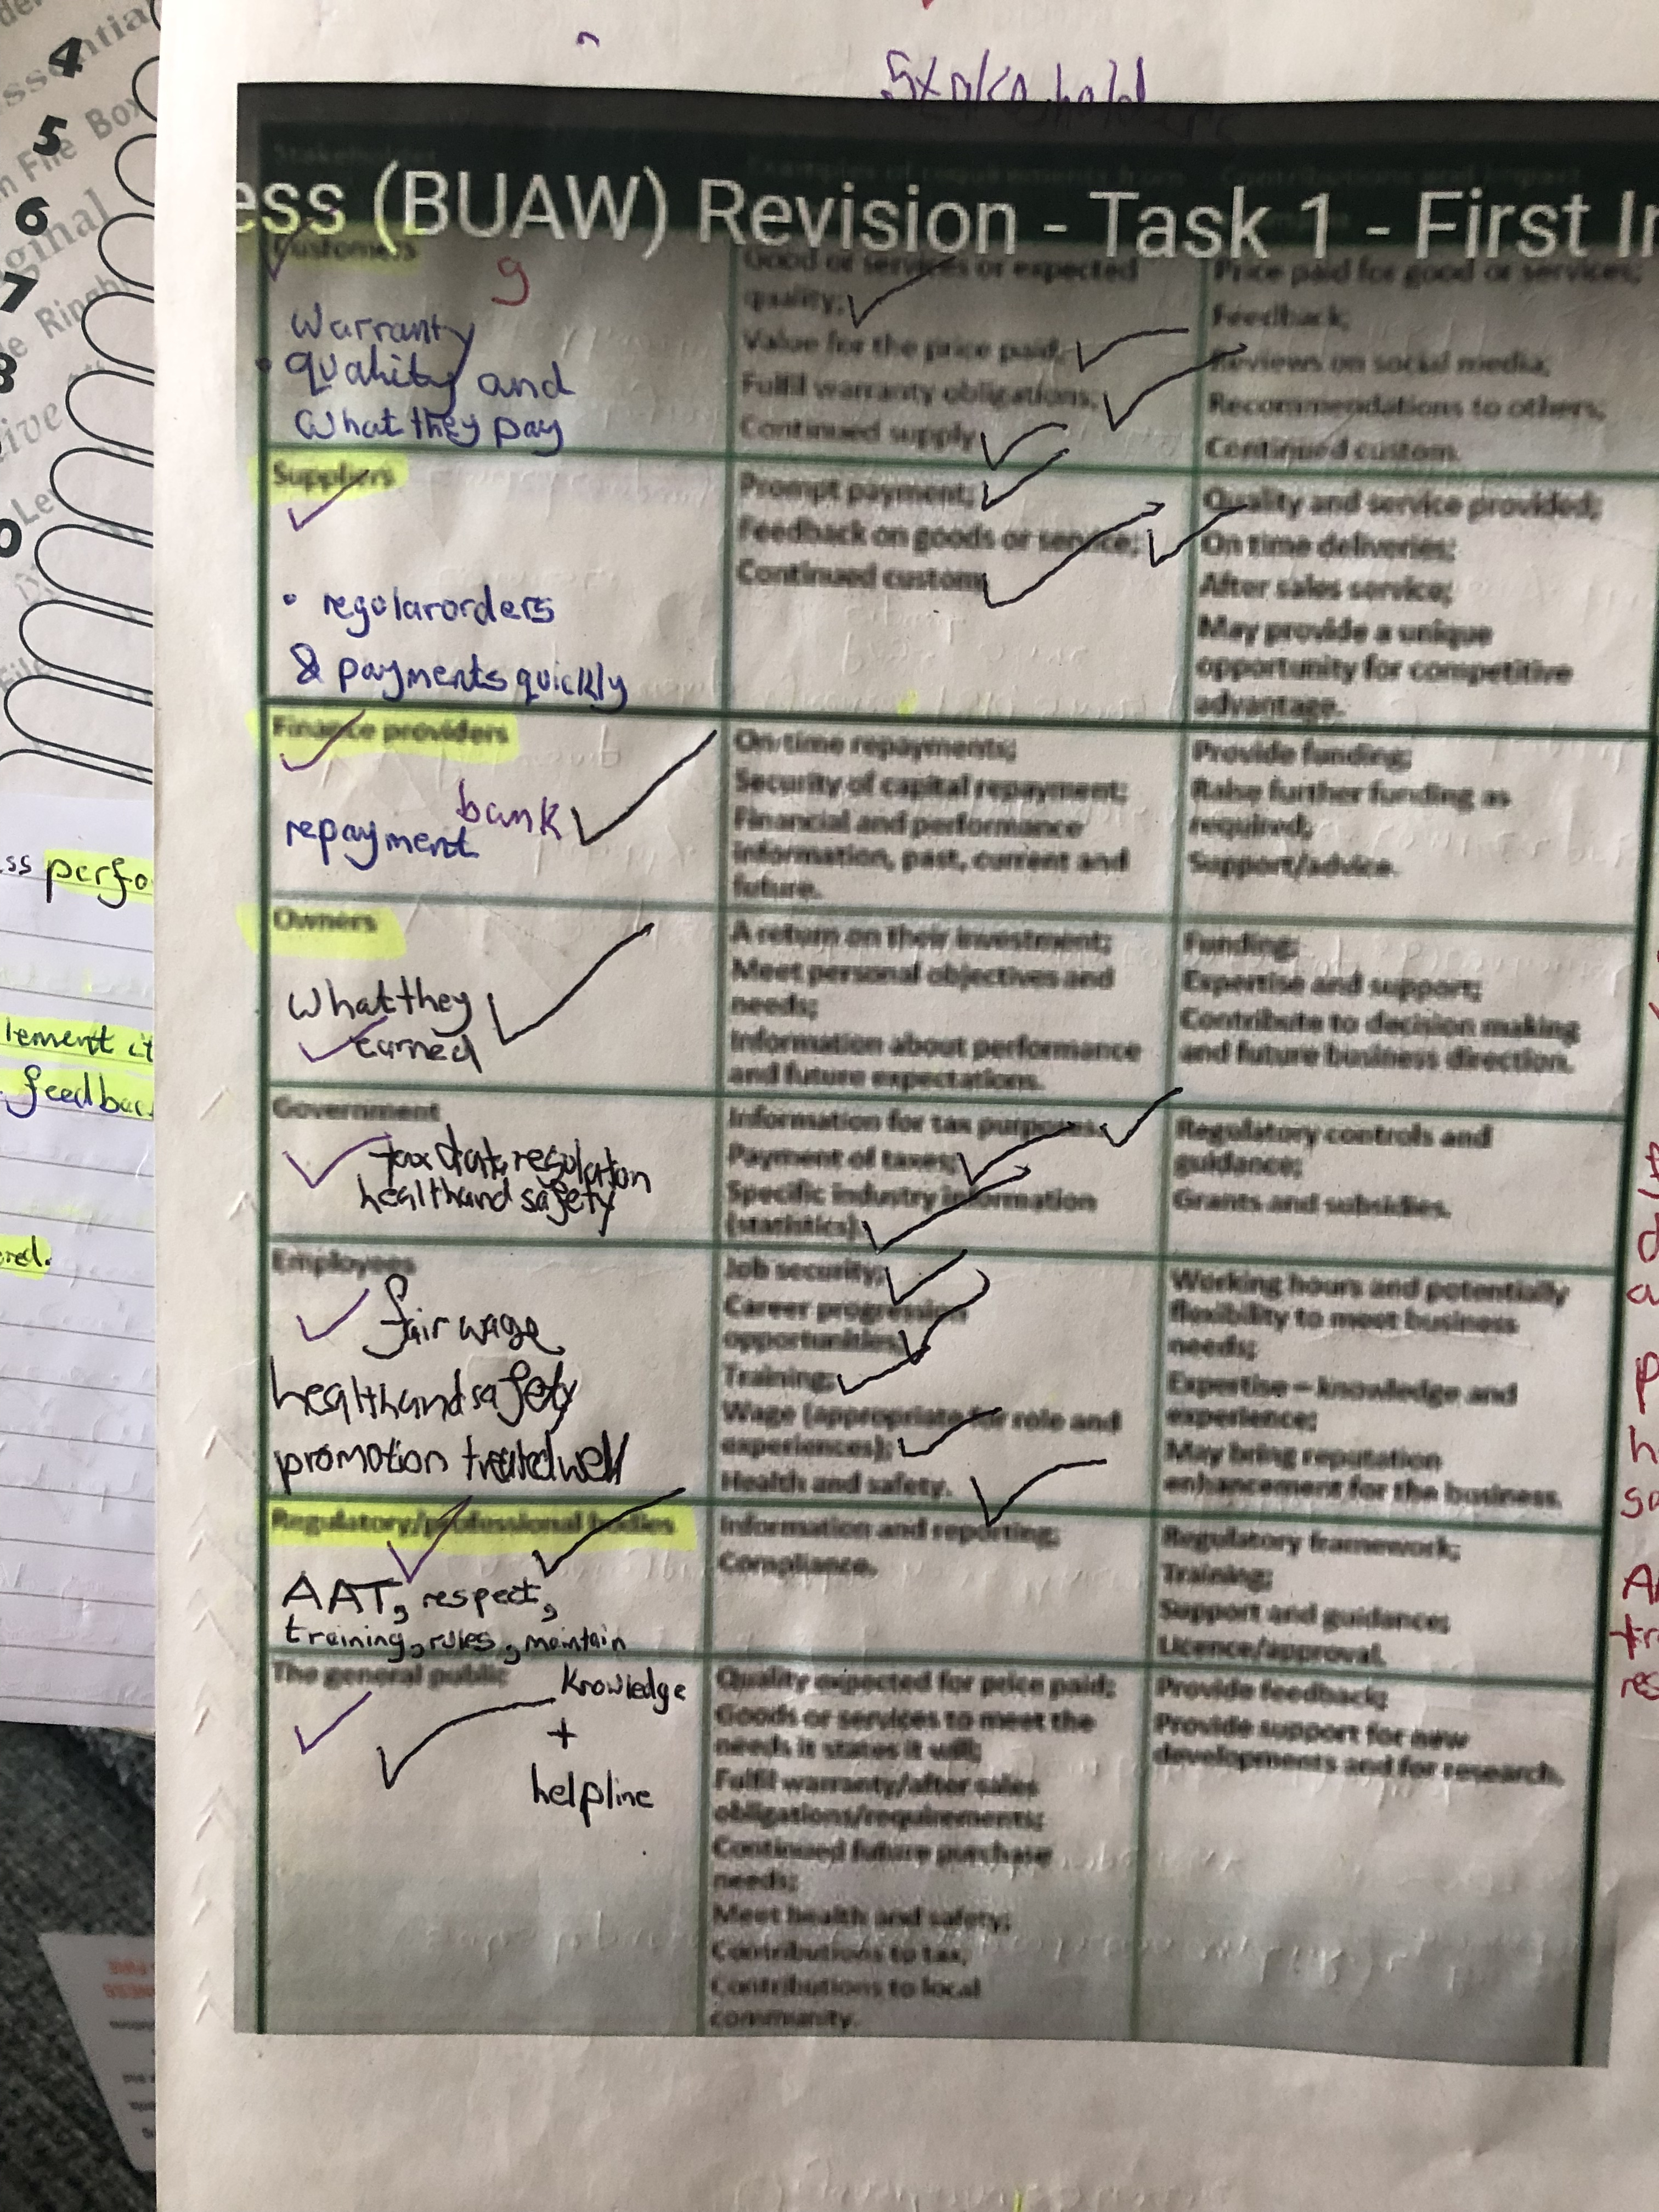 4
5
6
7
Stakeholders
Stakeholder
Examples of requirements from
Contributions and impact
ess (BUAW) Revision - Task 1 - First In
Customers
9
Warranty
• quality and
what they pay
Good or services or expected
quality;
Value for the price paid;
Fulfil warranty obligations;
Continued supply
Price paid for good or services;
Feedback;
Reviews on social media;
Recommendations to others;
Continued custom.
Suppliers
• regular orders
& payments quickly
Prompt payment;
Feedback on goods or service;
Continued custom
Quality and service provided;
On time deliveries;
After sales service;
May provide a unique
opportunity for competitive
advantage.
Finance providers
bank
repayment
On-time repayments;
Security of capital repayment;
Financial and performance
information, past, current and
future.
Provide funding;
Raise further funding as
required;
Support/advice.
Owners
what they
earned
A return on their investment;
Meet personal objectives and
needs;
Information about performance
and future expectations.
Funding;
Expertise and support;
Contribute to decision making
and future business direction.
Government
tax data, regulation
health and safety
Information for tax purposes;
Payment of taxes;
Specific industry information
(statistics)
Regulatory controls and
guidance;
Grants and subsidies.
Employees
fair wage
health and safety
promotion treated well
Job security;
Career progression
opportunities;
Training;
Wage (appropriate for role and
experiences);
Health and safety.
Working hours and potentially
flexibility to meet business
needs;
Expertise – knowledge and
experience;
May bring reputation
enhancement for the business.
Regulatory/professional bodies
AAT, respect,
training, rules, maintain
Information and reporting;
Compliance.
Regulatory framework;
Training;
Support and guidance;
Licence/approval.
The general public
Knowledge
+
helpline
Quality expected for price paid;
Goods or services to meet the
needs it states it will;
Fulfil warranty/after sales
obligations/requirements;
Continued future purchase
needs;
Meet health and safety;
Contributions to tax;
Contributions to local
community.
Provide feedback;
Provide support for new
developments and for research.
ss perfo
lement it
feedbac